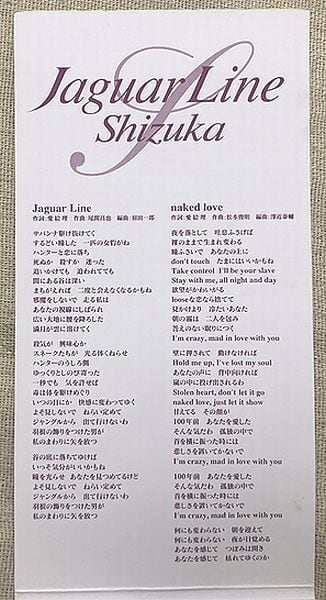 Jaguar Line
Shizuka
Jaguar Line
作詞:愛絵理 作曲:尾関昌也 編曲:
サバンナ駆け抜けて
するどい瞳した 一匹の女豹がね
ハンターと恋に落ち
死ぬか 殺すか 迷った
追いかけても 追われてても
間にある谷は深い
まちがえれば 二度と会えなくなるかもね
邪魔をしないで 走る私は
あなたの視線にしばられ
広い大地に腰を降ろした
満月が雲に溶けてく
殺気が 興味心か
スネークたちが 光る体くねらせ
ハンターのうしろ側
ゆっくりとしのび寄った
一秒でも 気を許せば
毒は体を駆けめぐり
いつの日にか 快感に変わってゆく
よそ見しないで ねらい定めて
ジャングルから 出て行けないわ
羽根の飾りをつけた男が
私のまわりに矢を放つ
谷の底に落ちてゆけば
いっそ気分がいいかもね
瞳を光らせ あなたを見つめてるけど
よそ見しないで ねらい定めて
ジャングルから 出て行けないわ
羽根の飾りをつけた男が
私のまわりに矢を放つ
naked love
作詞:愛絵理 作曲:松本俊明 編曲:澤近泰輔
夜を落として 吐息ふさげば
裸のままで生まれ変わる
瞳ふさいで あなたの上に
don't touch たまにはいいかもね
Take control I'll be your slave
Stay with me, all night and day
欲望がかわいがる
looseな恋なら捨てて
見かけより 冷たいあなた
朝の霧は 二人を包み
答えのない眠りにつく
I'm crazy, mad in love with you
壁に押されて 動けなければ
Hold me up, I've lost my soul
あなたの声に 背中向ければ
嵐の中に投げ出されるわ
Stolen heart, don't let it go
naked love, just let it show
甘えてる その顔が
100年前 あなたを愛した
そんな気がわ 孤独の中で
首を横に振った時には
悲しさを置いてかないで
I'm crazy, mad in love with you
100年前 あなたを愛した
そんな気がわ 孤独の中で
首を横に振った時には
悲しさを置いてかないで
I'm crazy, mad in love with you
何にも変わらない 朝を迎えて
何にも変わらない 夜が目覚める
あなたを感じて つぼみは開き
あなたを感じて 枯れてゆくのか